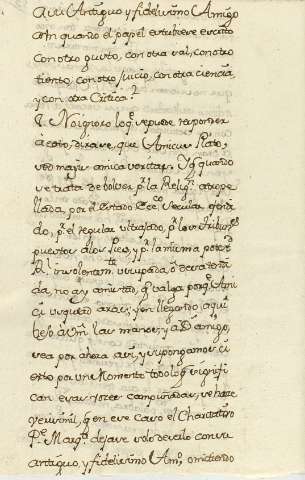 a su Antiguo y fidelissimo Amigo
aun quando el papel estubiese escrito
con otro gusto, con otra sal, con otro
tiento, con otro juicio, con otra ciencia,
y con otra Critica?
No ignoro lo q.e se puede responder
a esto, dirase, que Amicus Plato,
sed magis amica veritas. Y q.e quando
se trata de bolver p.r la Relig.n atrope
llada, por el Estado Ecc.o Secular ofendi
do, p.r el regular ultrajado, p.r los
puestos a los pies, y p.r la misma potest.d
R.l usurpada, o desatendi
da, no ay amistad, q.e valga porq.e Ami
cus usque ad aras; y en llegando aqui
beso a Vm. las manos; y a D.s amigo,
sea por ahora assi, y supongamos ci
erto por un momento todo lo q.e signifi
can essas voces campanudas, se hace
verisimil, q.e en esse caso el Charitativo
P.e Marq.z dejase solo de serlo con su
antiguo y fidelissimo Am.o omitiendo